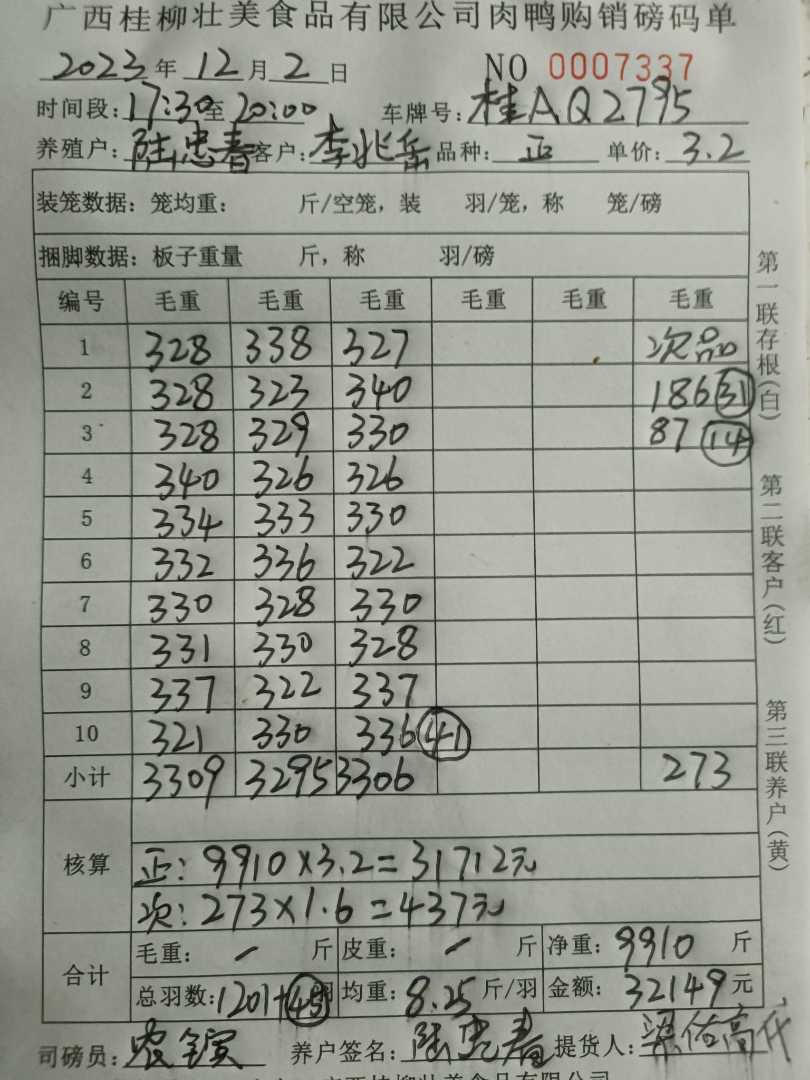 广西桂柳壮美食品有限公司肉鸭购销磅码单
2023年12月2日 NO 0007337
时间段:17:30至20:00 车牌号:桂AQ2795
养殖户:陆忠春 客户:李兆岳 品种:正 单价:3.2
装笼数据:笼均重: 斤/空笼,装 羽/笼,称 笼/磅
捆脚数据:板子重量 斤,称 羽/磅
编号 毛重 毛重 毛重 毛重 毛重 毛重
1 328 338 327 次品
2 328 323 340 186 31
3 328 329 330 87 14
4 340 326 326
5 334 333 330
6 332 336 322
7 330 328 330
8 331 330 328
9 337 322 337
10 321 330 336 41
小计 3309 3295 3306 273
核算
正:9910×3.2=31712元
次:273×1.6=437元
合计
毛重:- 斤 皮重:- 斤 净重:9910 斤
总羽数:1201+45 均重:8.25斤/羽 金额:32149元
司磅员: 养户签名:陆忠春 提货人:
第一联存根(白)
第二联客户(红)
第三联养户(黄)
广西桂柳壮美食品有限公司